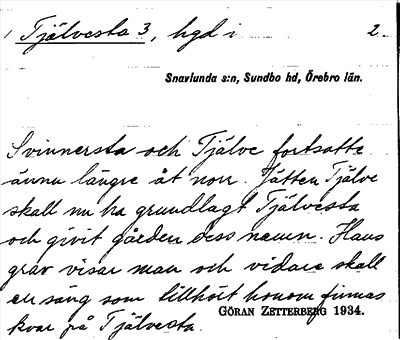 Tjälvesta 3, hgd i 2.
Snavlunda s:n, Sundbo hd, Örebro län.
Svinnersta och Tjälve fortsatte
ännu längre åt norr. Jätten Tjälve
skall nu ha grundlagt Tjälvesta
och givit gården dess namn. Hans
grav visar man och vidare skall
en säng som tillhört honom finnas
kvar på Tjälvesta.
GÖRAN ZETTERBERG 1934.